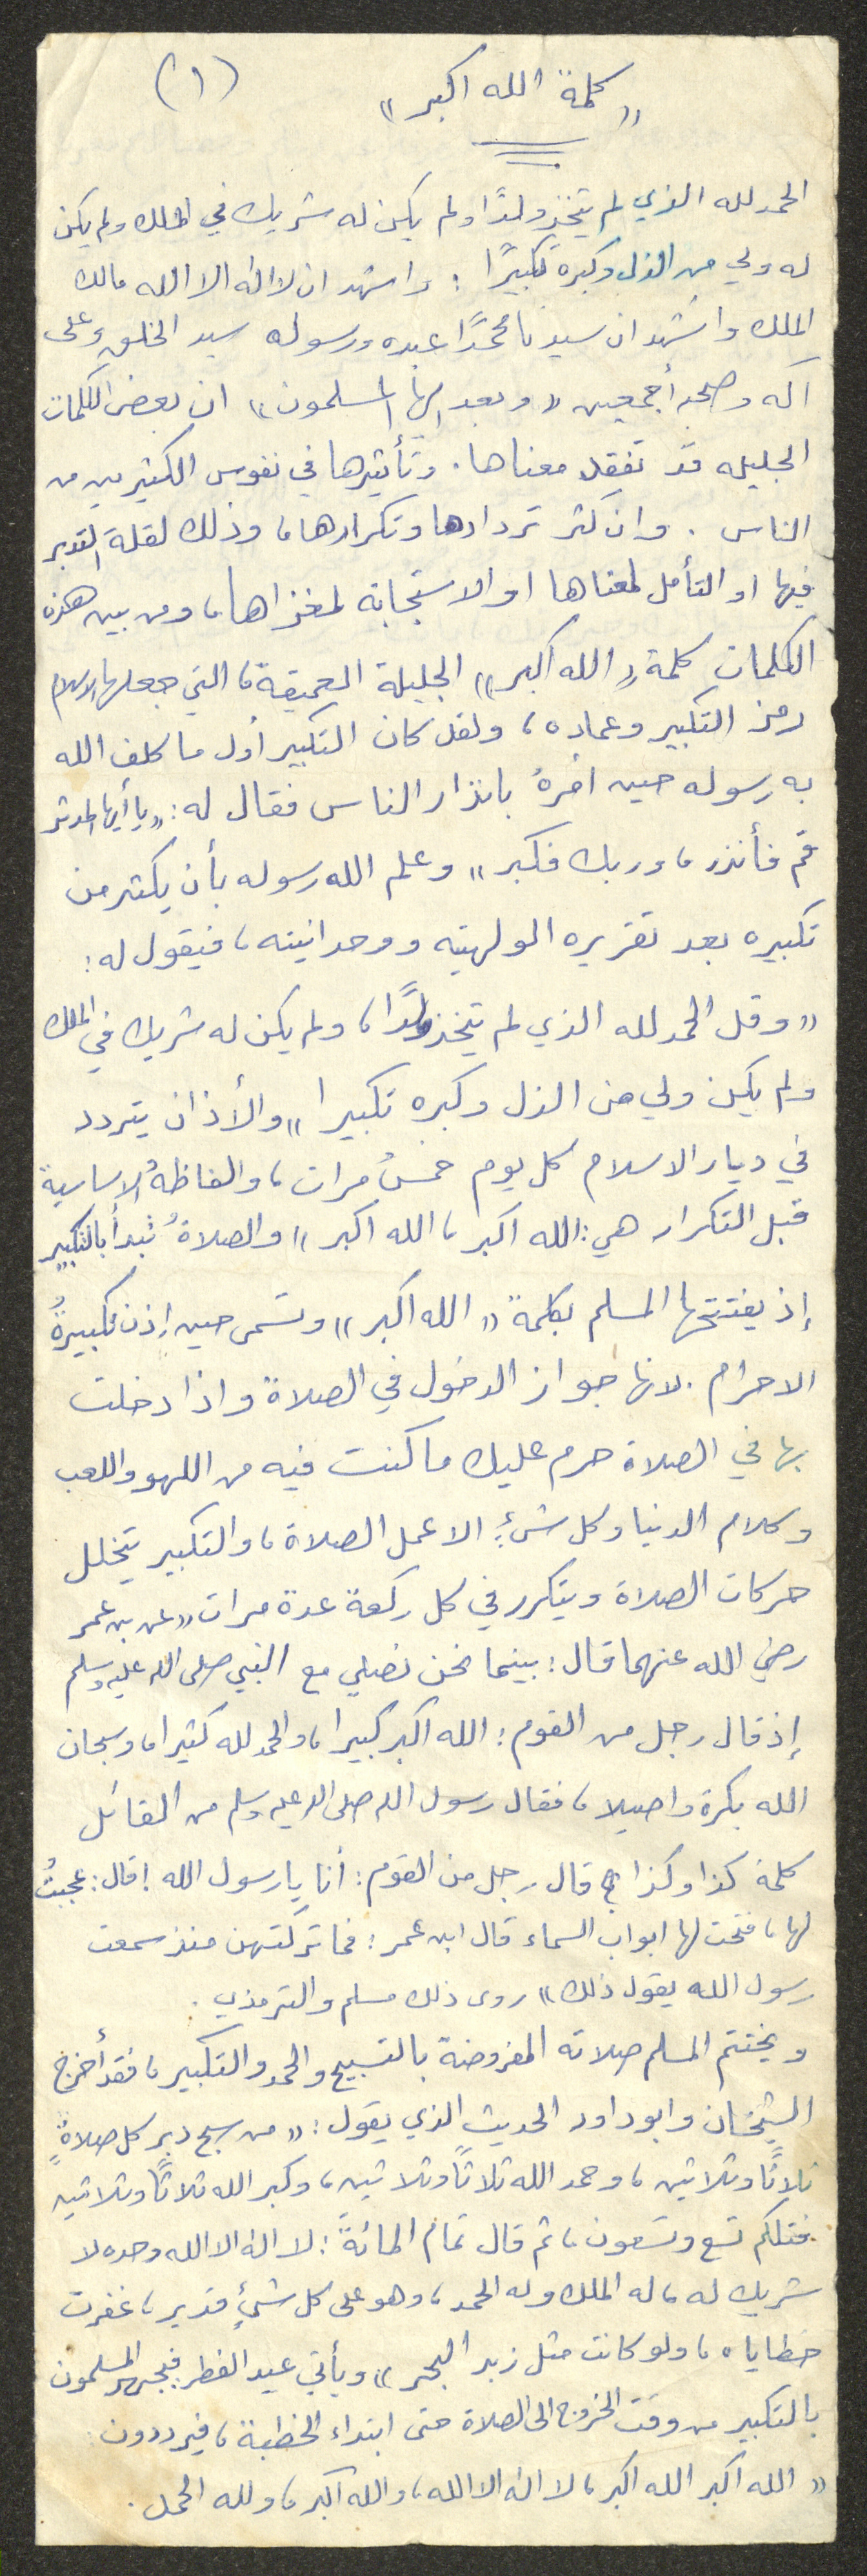 (١)
« كلمة الله اكبر »
الحمد لله الذي لم يتخذ ولدًا ولم يكن له شريك في الملك ولم يكن
له ولي من الذل وكبره تكبيرًا : واشهد ان لا اله الا الله مالك
الملك واشهد ان سيدنا محمدًا عبده ورسوله سيد الخلق وعلى
آله وصحبه أجمعين « وبعد ايها المسلمون » ان بعض الكلمات
الجليله قد تفقد معناها . وتأثيرها في نفوس الكثيرين من
الناس . وان كثر تردادها وتكرارها ، وذلك لقلة التدبر
فيها او التأمل لمعناها او الاستجابة لمغزاها ، ومن بين هذه
الكلمات كلمة « الله اكبر » الجليلة العميقة ، التي جعلها الاسلام
رمز التكبير وعماده ، ولقد كان التكبير أول ما كلف الله
به رسوله حين امرهُ بانذار الناس فقال له : « يا أيها المدثر
قم فأنذر ، وربك فكبر » وعلم الله رسوله بأن يكثر من
تكبيره بعد تقريره الولهيته ووحدانيته ، فيقول له :
« وقل الحمد لله الذي لم يتخذ ولدًا ، ولم يكن له شريك في الملك
ولم يكن ولي من الذل وكبره تكبيرا » والأذان يتردد
في ديار الاسلام كل يوم خمسُ مرات ، والفاظهُ الاساسية
قبل التكرار هي : الله اكبر ، الله اكبر » والصلاةُ تبدأ بالتكبير
إذ يفتتحها المسلم بكلمة « الله اكبر » وتسمى حين إذن تكبيرةُ
الاحرام . لانها جواز الدخول في الصلاة واذا دخلت
بها في الصلاة حرم عليك ما كنت فيه من اللهو واللعب
وكلام الدنيا وكل شئٍ الا عمل الصلاة ، والتكبير يتخلل
حركات الصلاة ويتكرر في كل ركعة عدة مرات « عن بن عمر
رضي الله عنهما قال : بينما نحن نصلي مع النبي صلى الله عليه وسلم
إذ قال رجل من القوم : الله اكبر كبيرا ، والحمد لله كثيرا ، وسبحان
الله بكرة واصيلا ، فقال رسول الله صلى الله عليه وسلم من القائل
كلمة كذا وكذا ؟ قال رجل من القوم : أنا يا رسول الله ! قال : عجبتُ
لها ، فتحت لها ابواب السماء قال ابن عمر : فما تركتهن منذ سمعت
رسول الله يقول ذلك » روى ذلك مسلم والترمذي .
ويختتم المسلم صلاته المفروضة بالتسبيح والحمد والتكبير ، فقد أخرج
الشيخان وابو داود الحديث الذي يقول : « من سبح دبر كل صلاةٍ
ثلاثًا وثلاثين ، وحمد الله ثلاثًا وثلاثين ، وكبر الله ثلاثًا وثلاثين
فتلكم تسع وتسعون ، ثم قال تمام المائةً : لا اله الا الله وحده لا
شريك له ، له الملك وله الحمد ، وهو على كل شئٍ قدير ، غفرت
خطاياه ، ولو كانت مثل زبد البحر » ويأتي عيد الفطر فيجهر المسلمون
بالتكبير من وقت الخروج الى الصلاة حتى ابتداء الخطبة ، فيرددون
« الله اكبر الله اكبر ، لا اله الا الله ، والله اكبر ، ولله الحمد .